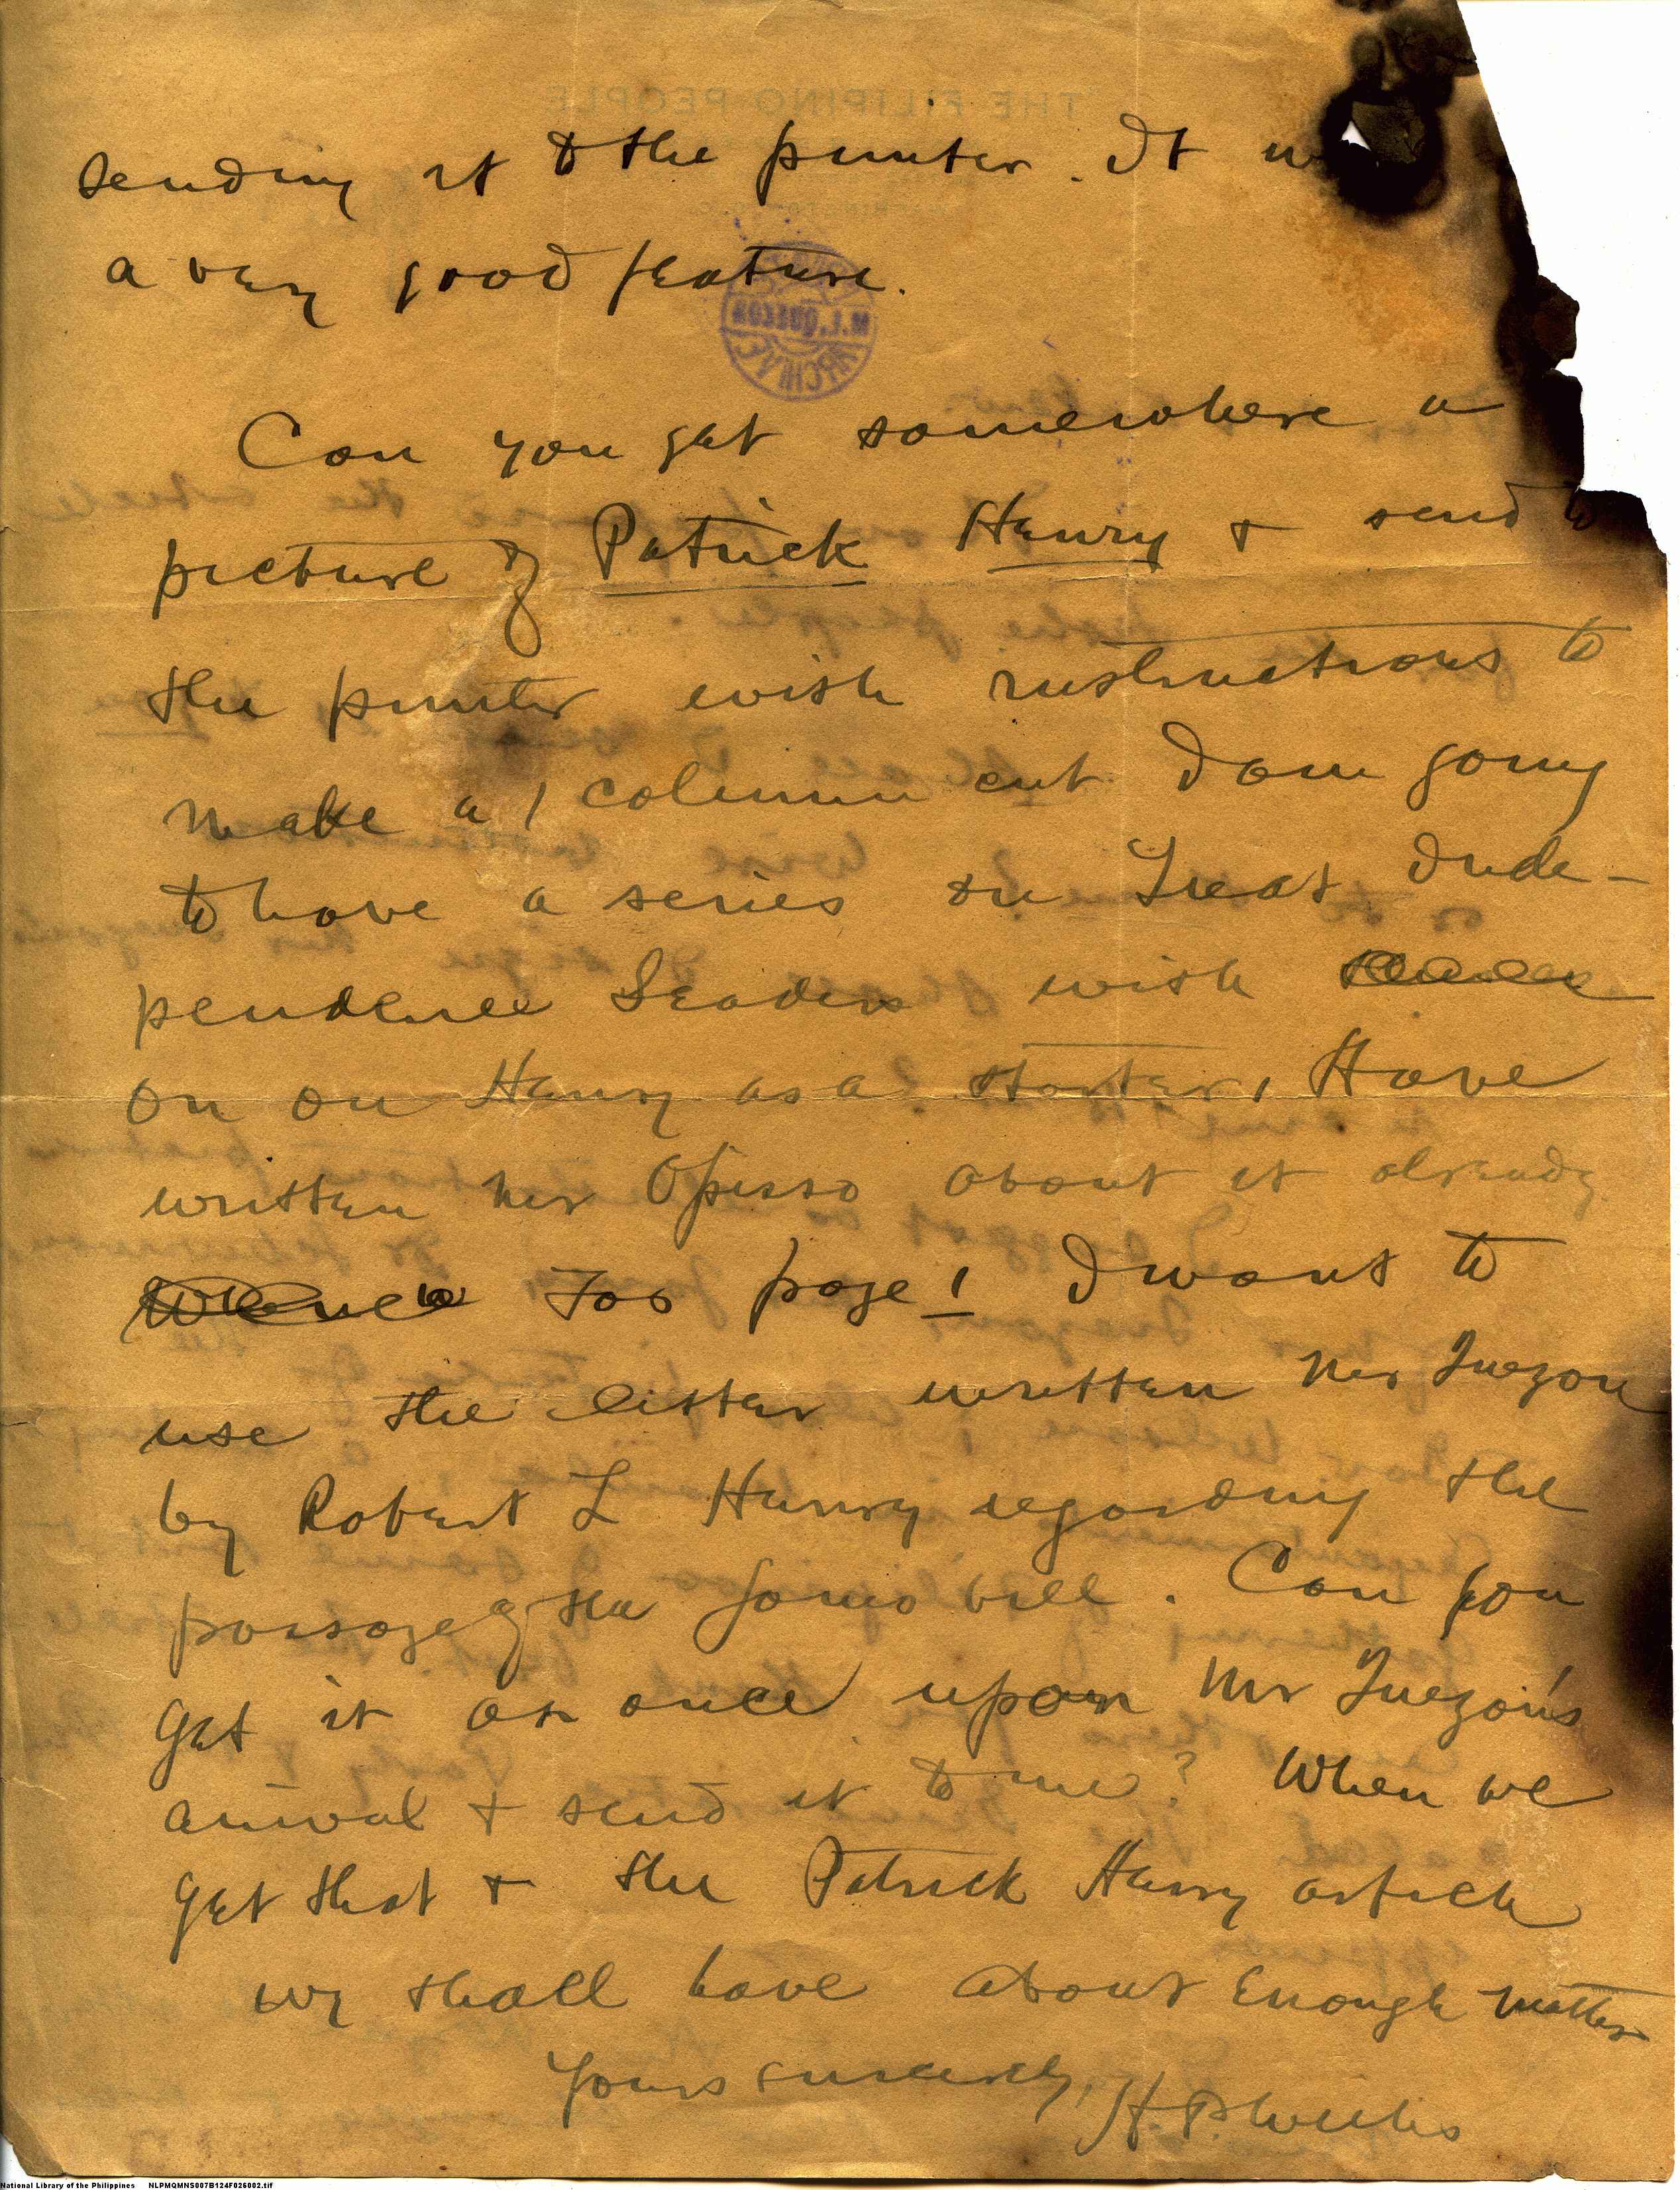 sending it to the printer. It w
a very good feature.
Can you get somewhere a
picture of Patrick Henry + send to
the printer with instructions to
make a 1 column cut I am going
to have a series on Great Inde-
pendence Leaders with
on on Henry as a starter, Have
written Mr Opisso about it already
For page 1 I want to
use the letter written Mr Quezon
by Robert L Henry regarding the
passage of the Jones bill. Can you
get it at once upon Mr Quezon's
arrival + send it to me? When we
get that + the Patrick Henry article
we shall have about enough matter
Yours sincerely, H. P. Willis
National Library of the Philippines NLPMQMNS007B124F026002.tif